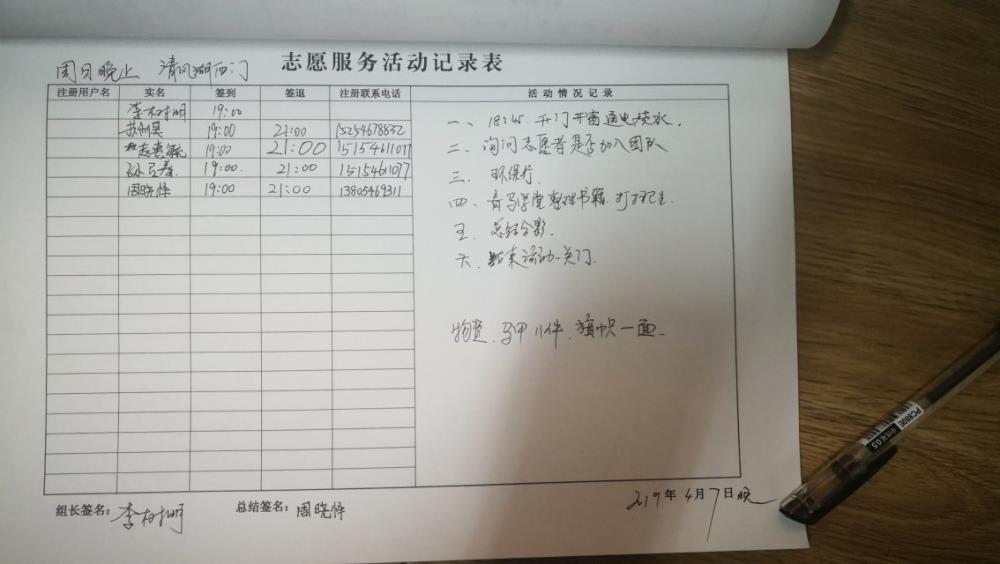 周日晚上 清风湖西门 志愿服务活动记录表
注册用户名 实名 签到 签退 注册联系电话 活动情况记录
李树明 19:00
19:00 21:00 15254678832
19:00 21:00 15154611077
19:00 21:00 15154611077
周晓怿 19:00 21:00 13805469311
一、18:45.开门开窗通电接水.
二、询问志愿者是否加入团队
三.环保行.
四、青马学堂整理书籍.打扫卫生
五.总结合影.
六.结束活动—关门.
物资.马甲11件.旗帜一面.
组长签名:李树明 总结签名:周晓怿
2019年4月7日晚
PC880E
中性笔 0.5